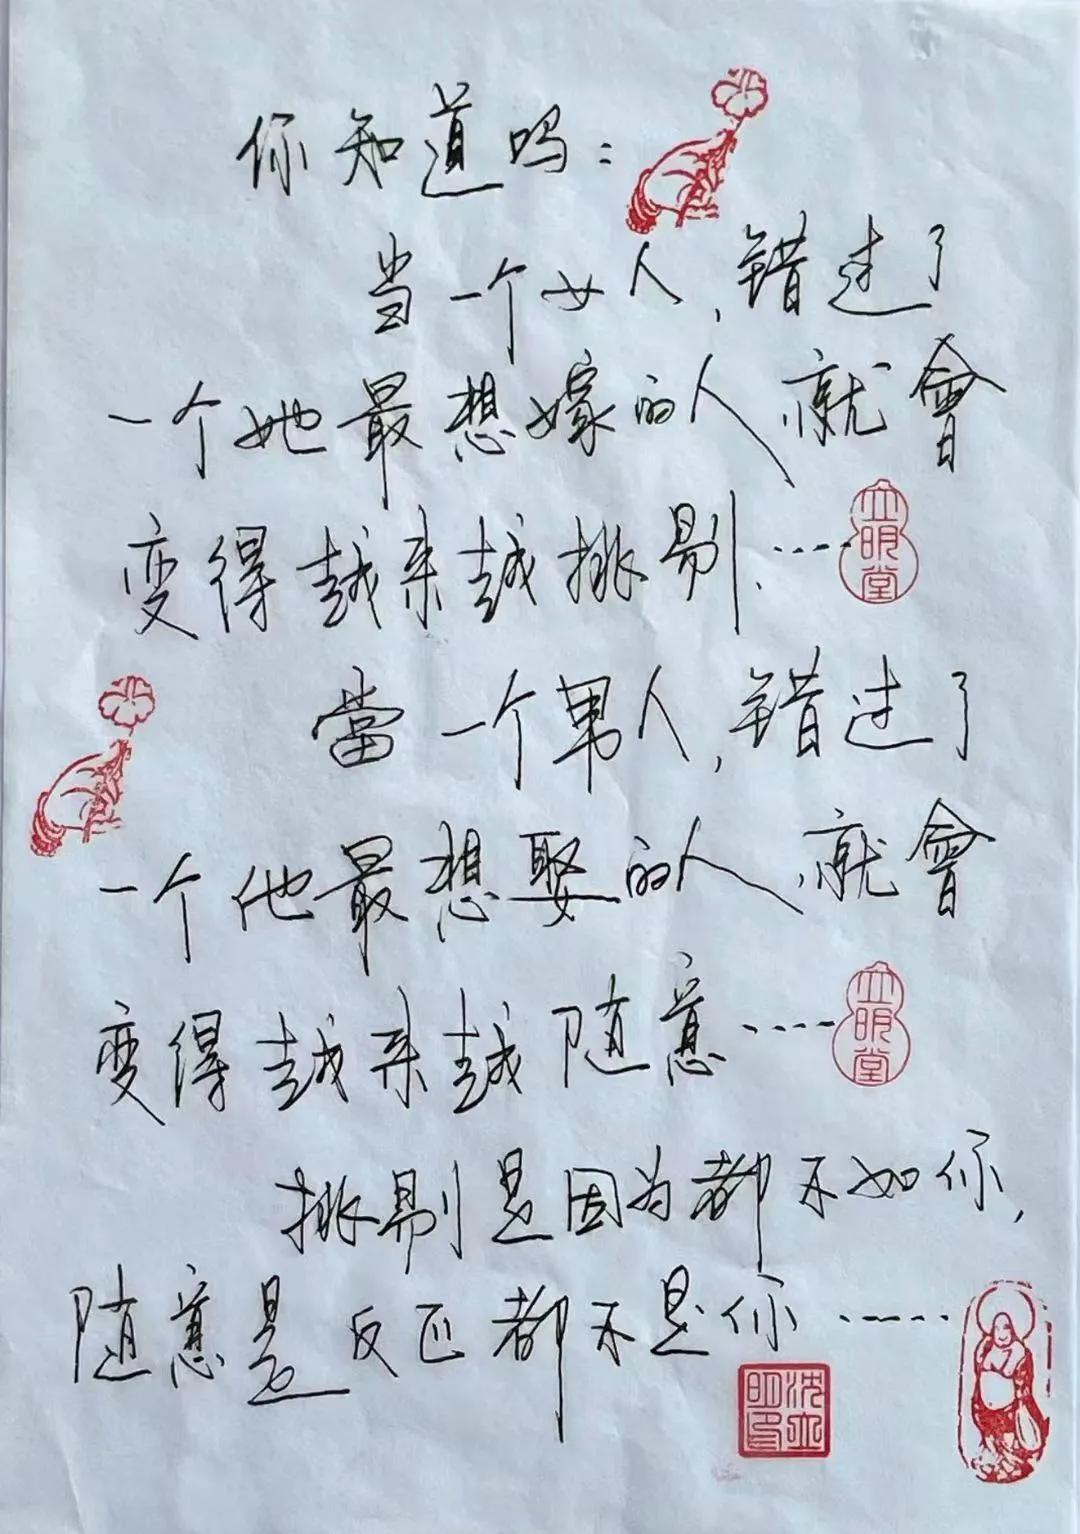 你知道吗：
当一个女人，错过了
一个她最想嫁的人，就會
变得越来越挑剔……
當一个男人，错过了
一个他最想娶的人，就會
变得越来越随意……
挑剔是因为都不如你，
随意是反正都不是你……